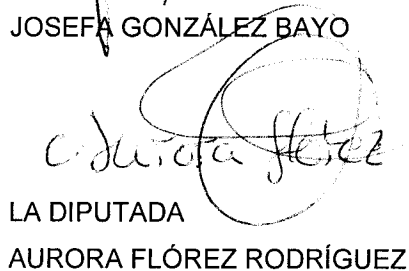 JOSEFA GONZÁLEZ BAYO
Aurora Flórez
LA DIPUTADA
AURORA FLÓREZ RODRÍGUEZ